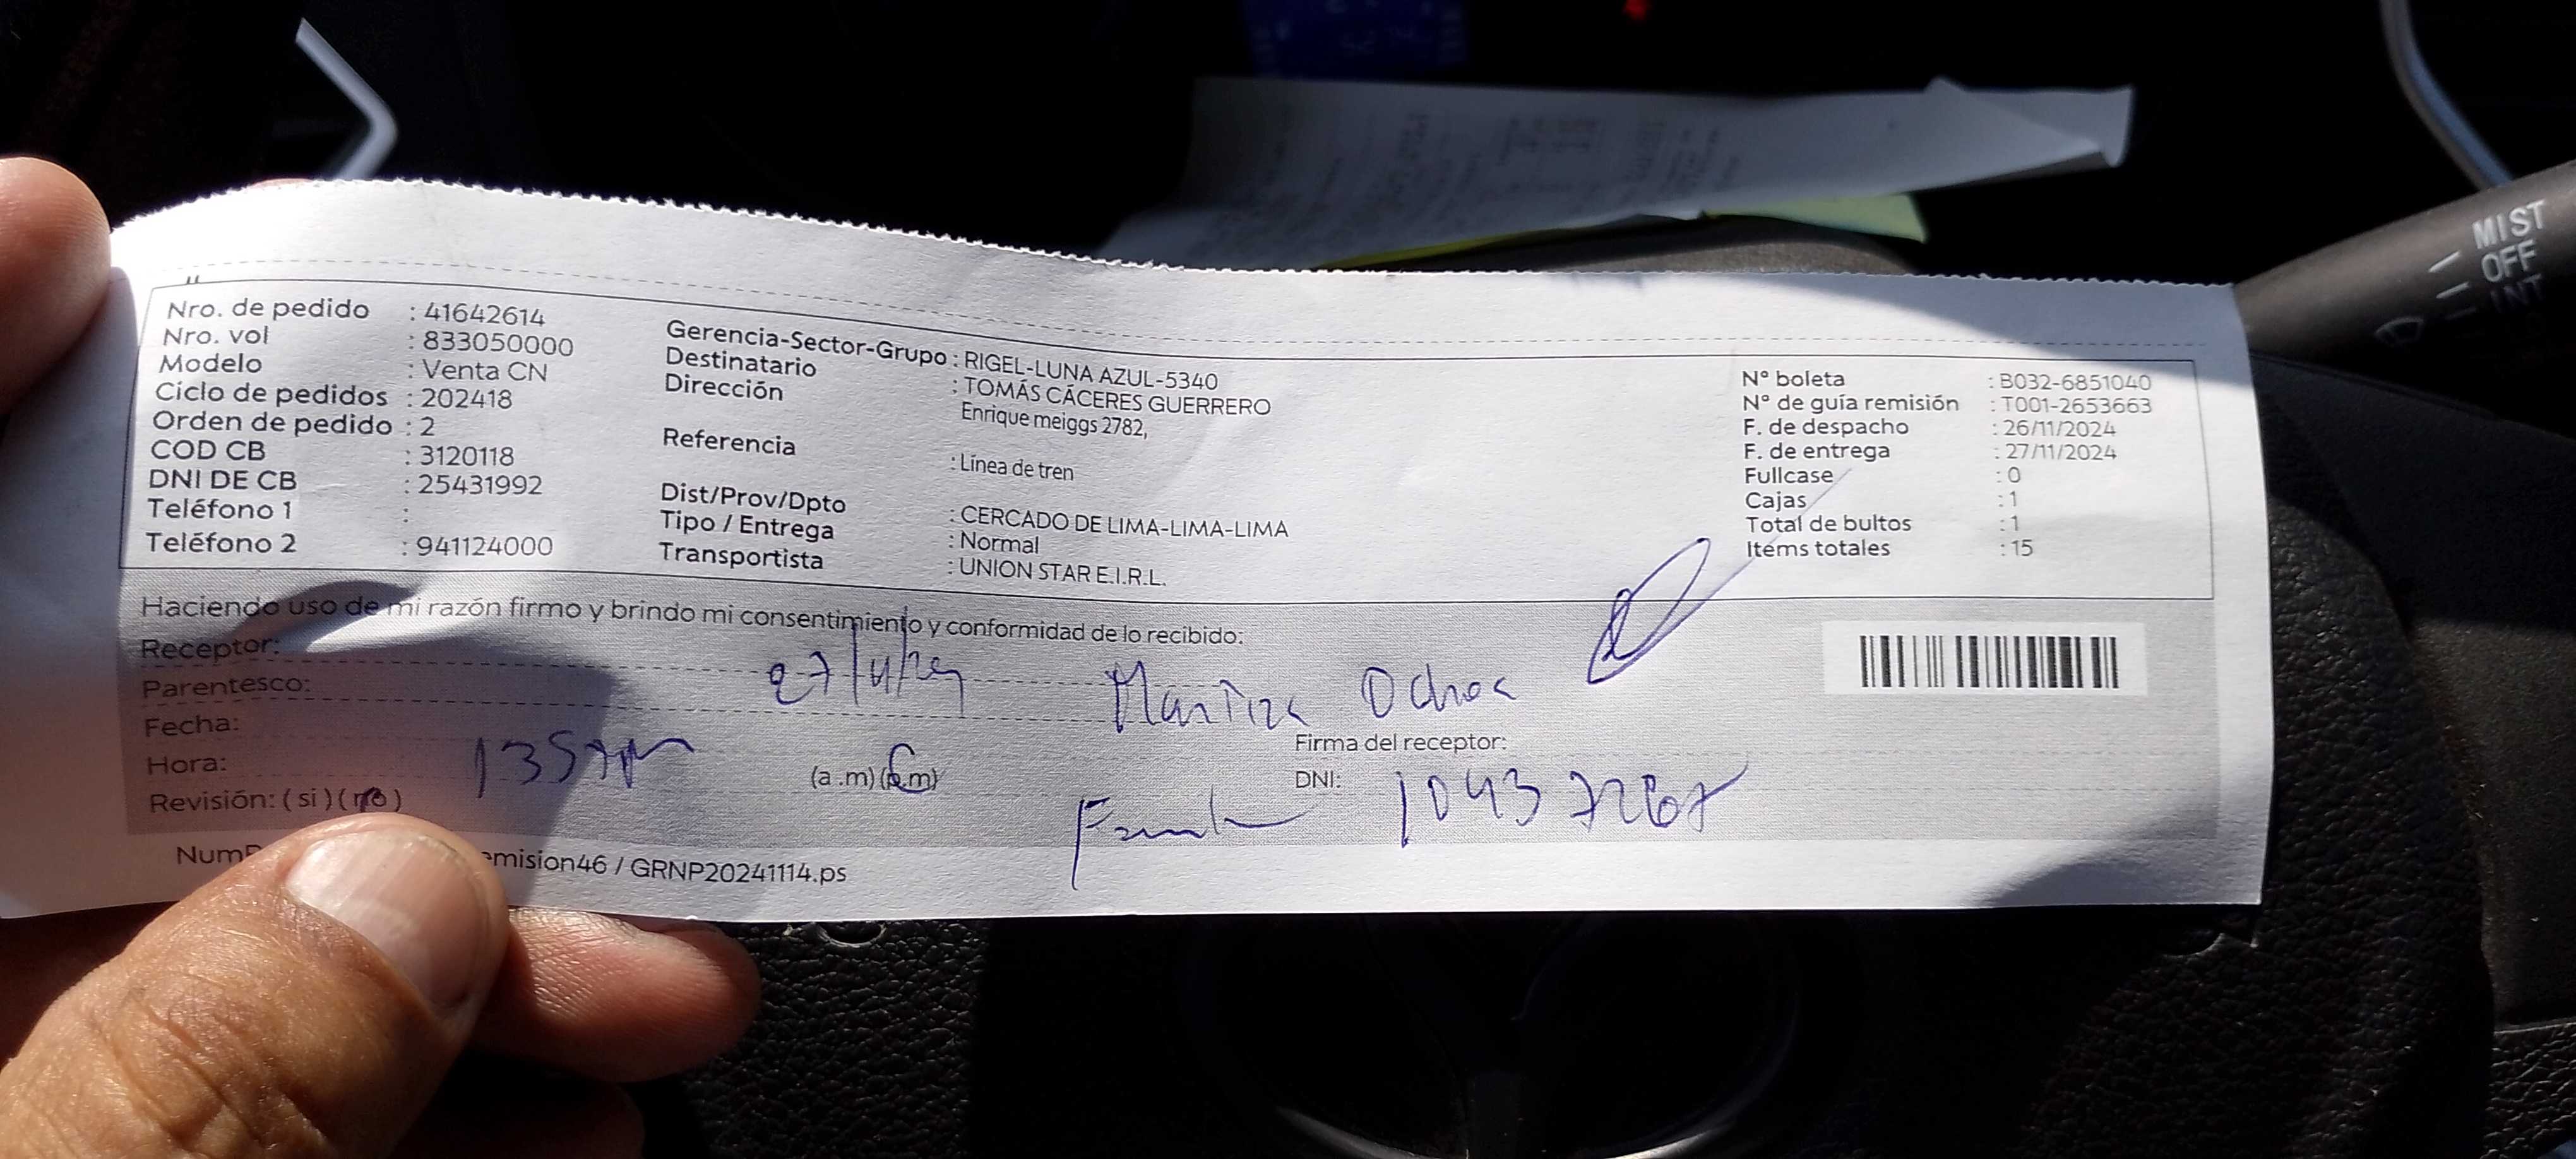 Nro. de pedido : 41642614
Nro. vol : 833050000
Modelo : Venta CN
Ciclo de pedidos : 202418
Orden de pedido : 2
COD CB : 3120118
DNI DE CB : 25431992
Teléfono 1 :
Teléfono 2 : 941124000
Gerencia-Sector-Grupo : RIGEL-LUNA AZUL-5340
Destinatario : TOMÁS CÁCERES GUERRERO
Dirección Enrique meiggs 2782,
Referencia : Línea de tren
Dist/Prov/Dpto : CERCADO DE LIMA-LIMA-LIMA
Tipo / Entrega : Normal
Transportista : UNION STAR E.I.R.L.
N° boleta : B032-6851040
N° de guía remisión : T001-2653663
F. de despacho : 26/11/2024
F. de entrega : 27/11/2024
Fullcase : 0
Cajas : 1
Total de bultos : 1
Items totales : 15
Haciendo uso de mi razón firmo y brindo mi consentimiento y conformidad de lo recibido:
Receptor:
Parentesco: 27/11/24 Maritza Ochoa
Fecha:
Firma del receptor:
Hora: (a.m) (p.m)
DNI: 10437267
Revisión: (si) (no)
emision46 / GRNP20241114.ps
MIST
OFF
INT